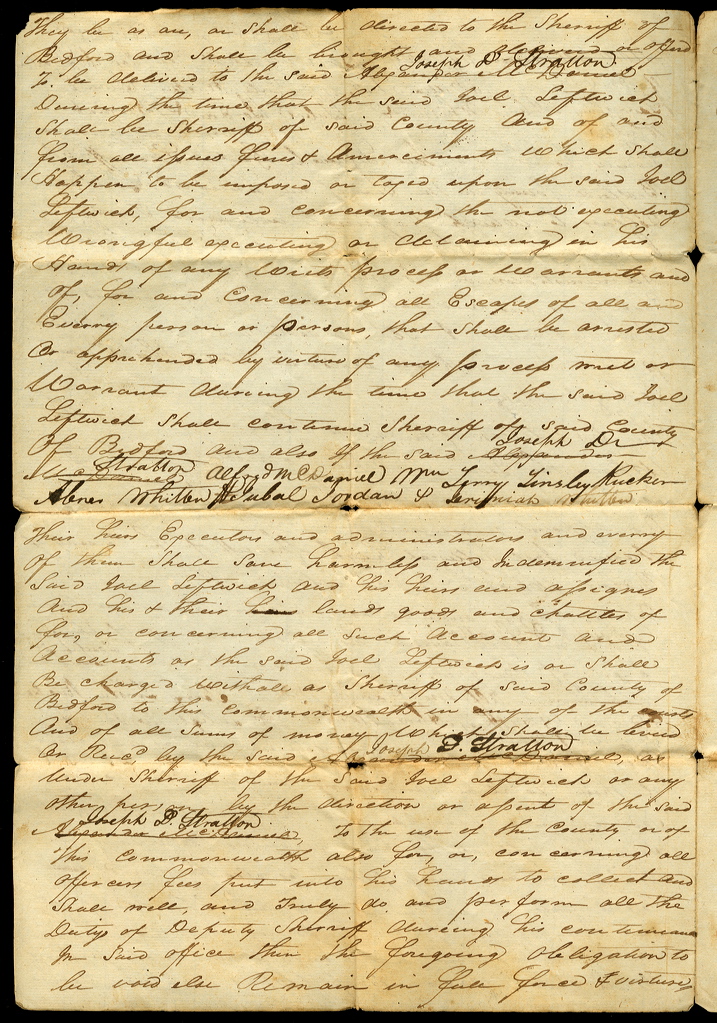 They be as an, or Shall be directed to the Sherriff of
Bedford and Shall be brought and delivered or offerd
Joseph D Stratton
To be delivered to the said Alexander McDaniel
During the time that the said Joel Leftwich
Shall be Sherriff of said County And of and
from all issues fines & Amercements Which Shall
Happen to be imposed or taxed upon the said Joel
Leftwich, for and concerning the not executing
Wrongful executing or detaining in his
Hands of any Writs process or Warrants and
of, for and Concerning all Escapes of all and
Everry person or persons, that Shall be arrested
Or apprehended by virtue of any process writ or
Warrant dureing the time that the said Joel
Leftwich Shall continue Sherriff of said County
Joseph D
Of Bedford and also If the said Alexander
Stratton
McDaniel Alfred McDaniel Wm Terry Tinsley Rucker
Abner Whitten Jubal Jordan & Jeremiah Whitten
Their heirs Executors and administrators and everry
Of them Shall Save harmless and Indemnified the
Said Joel Leftwich and his heirs and assignes
And his & their heirs lands goods and Chattles of
for, or concerning all Such Account and
Accounts as the said Joel Leftwich is or Shall
Be Charged Withall as Sherriff of Said County of
Bedford to this Commonwealth in any of the courts
And of all Sums of money Which Shall be levied
Joseph D. Stratton
Or Recd, by the said Alexander McDaniel, as
Under Sherriff of the Said Joel Leftwich or any
other person by the direction or assent of the said
Joseph D. Stratton
Alexander McDaniel, To the use of the County or of
This Commonwealth also for, or, concerning all
officers fees put into his hands to collect and
Shall well, and Truly do and perform all the
Duty of Deputy Sherriff dureing his continuence
In Said office then the foregoing Obligation to
be void else Remain in full force & virtue